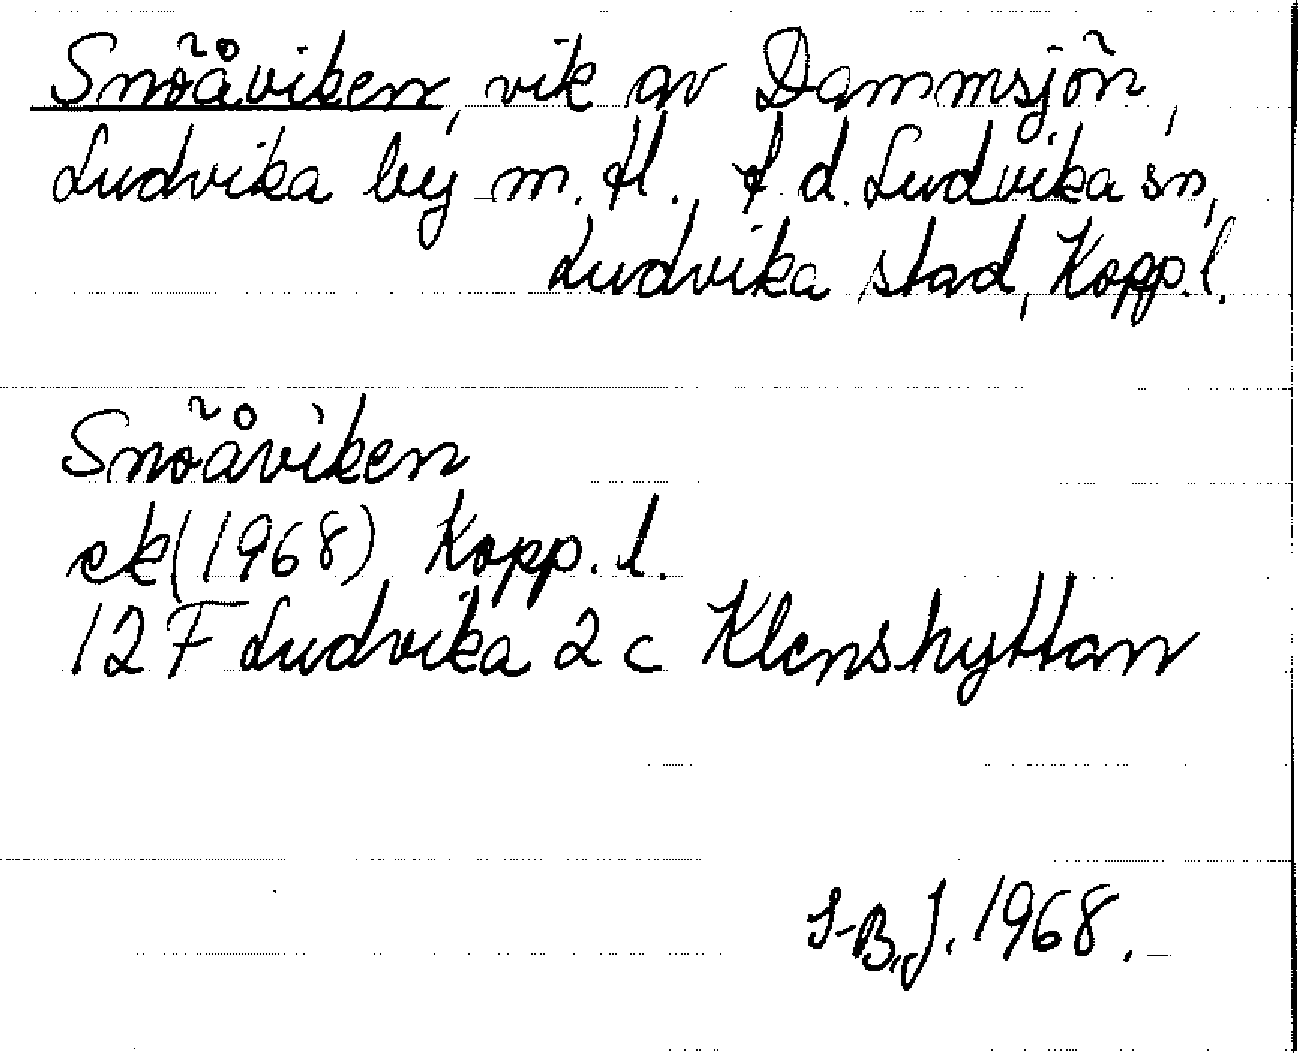 Snöåviken, vik av Dammsjön,
Ludvika by m. fl. f. d. Ludvika sn,
Ludvika stad, Kopp. l.
Snöåviken
ek (1968) Kopp. l.
12 F Ludvika 2 c Klenshyttan
I-B.J. 1968.